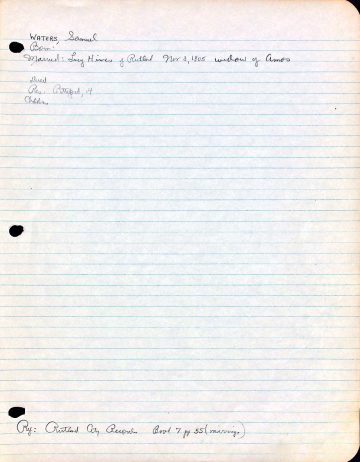 WATERS, Samuel
Born:
Married: Lucy Hines of Rutland Nov 3, 1805 widow of Amos
Died
Res. Pittsford, Vt
Children
Ref: Rutland City Records Book 7 pg 55 (marriage)